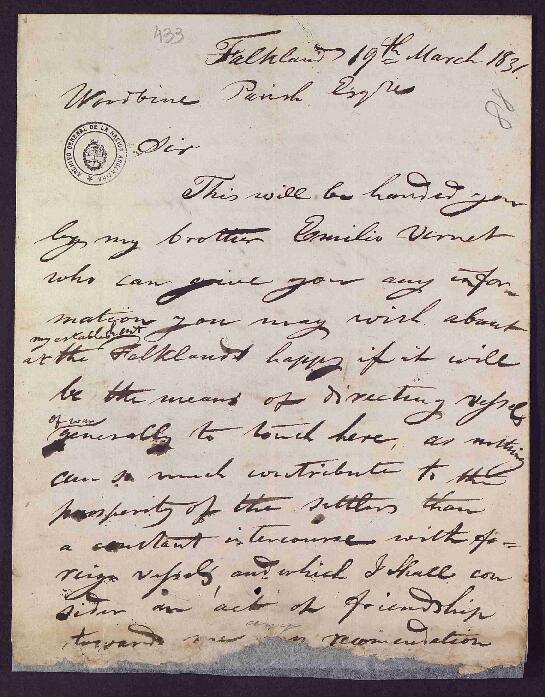 433
Falkland 19th March 1831
88
Woodbine Parish Esqre
ARCHIVO GENERAL DE LA NACION ARGENTINA
Sir
This will be handed you
by my brother Emilio Vernet
who can give you any infor-
mation you may wish about
my establishment
at the Falkland happy if it will
be the means of directing vessels
of war
generally to touch here, as nothing
can so much contribute to the
prosperity of the settlers than
a constant intercourse with fo-
reign vessels and which I shall con
sider an act of friendship
towards me any recomendation